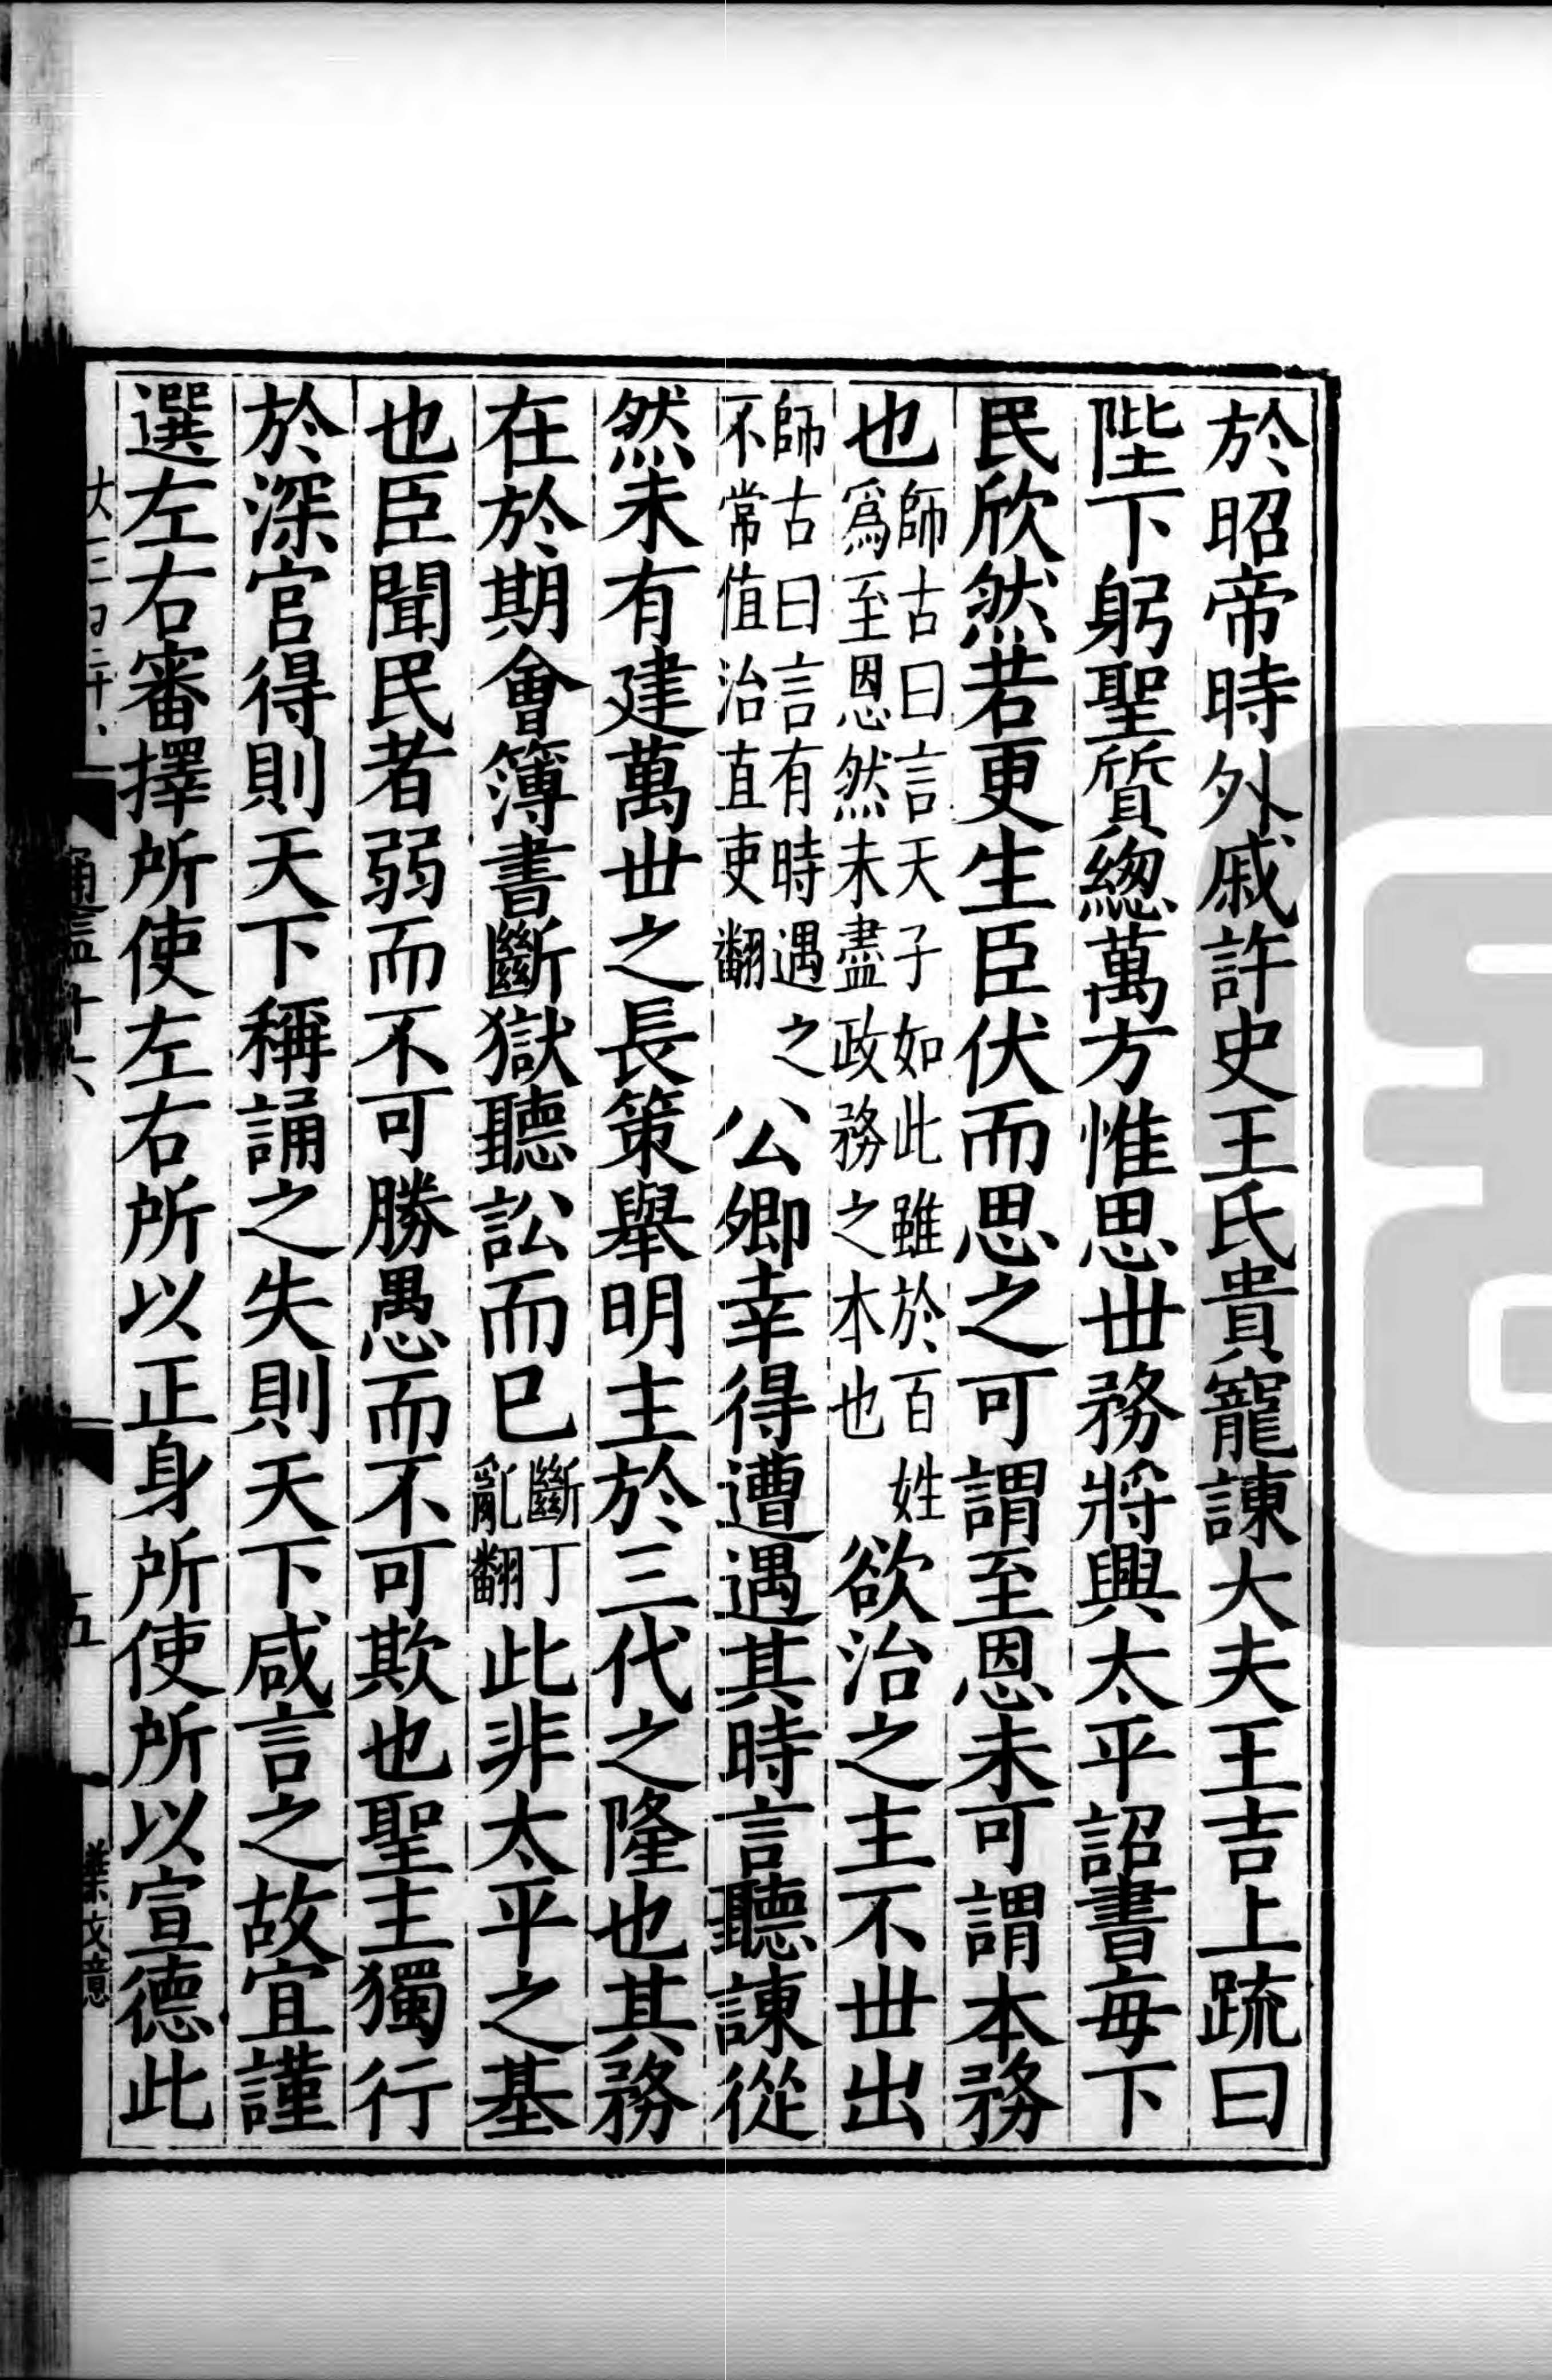 於昭帝時外戚許史王氏貴寵諫大夫王吉上疏曰
陛下躬聖質緫萬方惟思丗務將興太平詔書毎下
民欣然若更生臣伏而思之可謂至恩未可謂本務
也師古曰言天子如此雖於百姓爲至恩然未盡政務之本也欲治之主不丗出
師古曰言有時遇之不常值治直吏翻公卿幸得遭遇其時言聽諫從
然未有建萬丗之長策舉明主於三代之隆也其務
在於期會簿書斷獄聽訟而已斷丁亂翻此非太平之基
也臣聞民者弱而不可勝愚而不可欺也聖主獨行
於深宫得則天下稱誦之失則天下咸言之故宜謹
選左右審擇所使左右所以正身所使所以宣德此
五